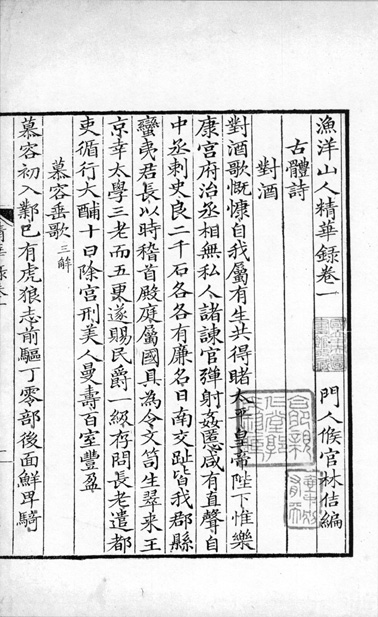 漁洋山人精華錄卷一
門人候官林佶編
古體詩
對酒
對酒歌慨慷自我屬有生共得睹太平皇帝陛下惟樂
康宮府治丞相無私人諸諫官彈射姦慝咸有直聲自
中丞刺史良二千石各各有廉名日南交趾皆我郡縣
蠻夷君長以時稽首殿庭屬國具為令文笥生翠來王
京幸太學三老而五更遂賜民爵一級存問長老遣都
吏循行大酺十日除宮刑美人曼壽百室豐盈
慕容垂歌三解
慕容初入鄴已有虎狼志前驅丁零部後面鮮卑騎